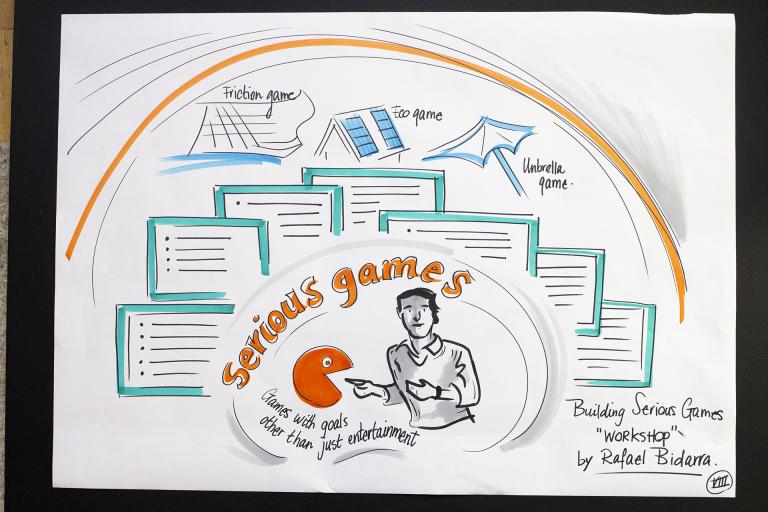 Friction game
Eco game
Unbrella
game.
serious games
Games with goals
other than just entertainment
Building Serious Games
"WORKSHOP"
by Rafael Bidarra.
VIII